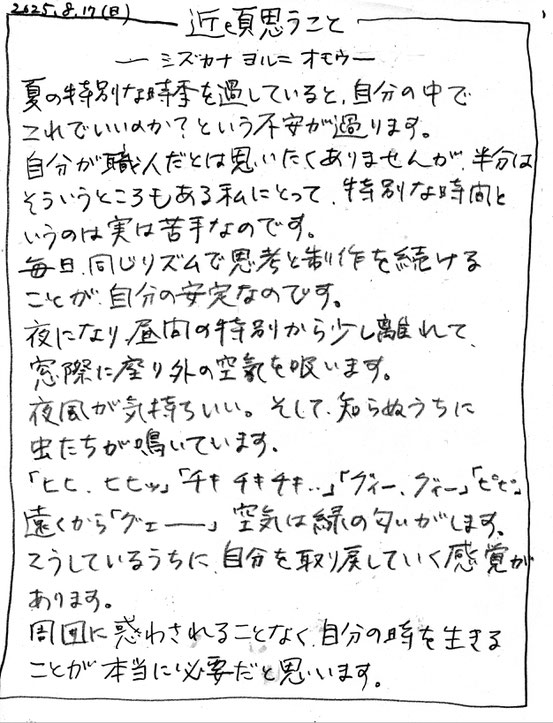 2025.8.17(日)
近頃思うこと
ーシズカナ ヨルニ オモウー
夏の特別な時季を過していると、自分の中で
これでいいのか?という不安が過ります。
自分が職人だとは思いたくありませんが、半分は
そういうところもある私にとって、特別な時間と
いうのは実は苦手なのです。
毎日、同じリズムで思考と制作を続ける
ことが、自分の安定なのです。
夜になり、昼間の特別から少し離れて、
窓際に座り外の空氣を吸います。
夜風が気持ちいい。そして、知らぬうちに
虫たちが鳴いています。
「ヒヒ、ヒヒッ」「チキチキチキ‥」「ヴィー、ヴィー」「ピピ」
遠くから「グェーー」空気は緑の匂いがします。
こうしているうちに、自分を取り戻していく感覚が
あります。
周囲に惑わされることなく、自分の時を生きる
ことが本当に必要だと思います。